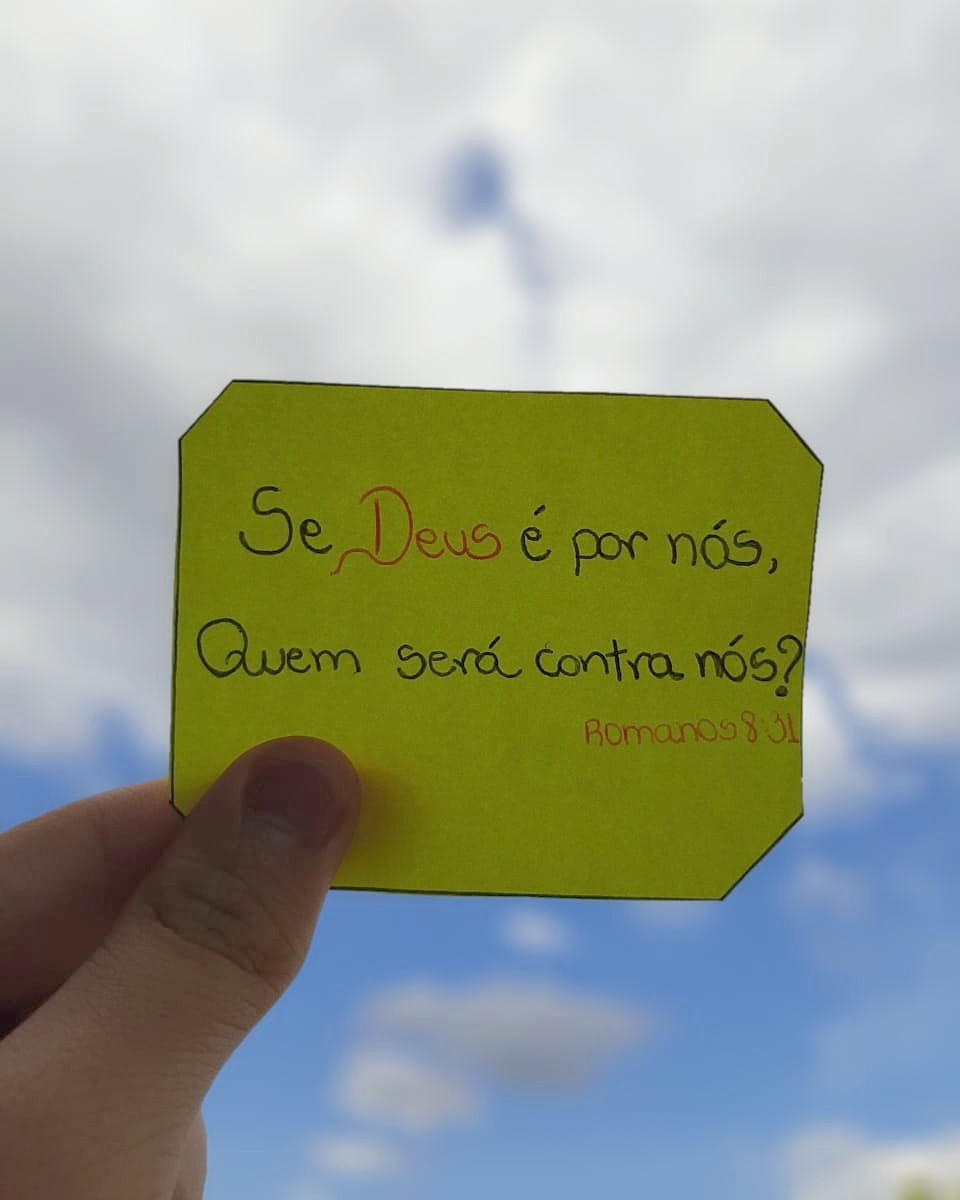 Se Deus é por nós,
Quem será contra nós?
Romanos 8:31